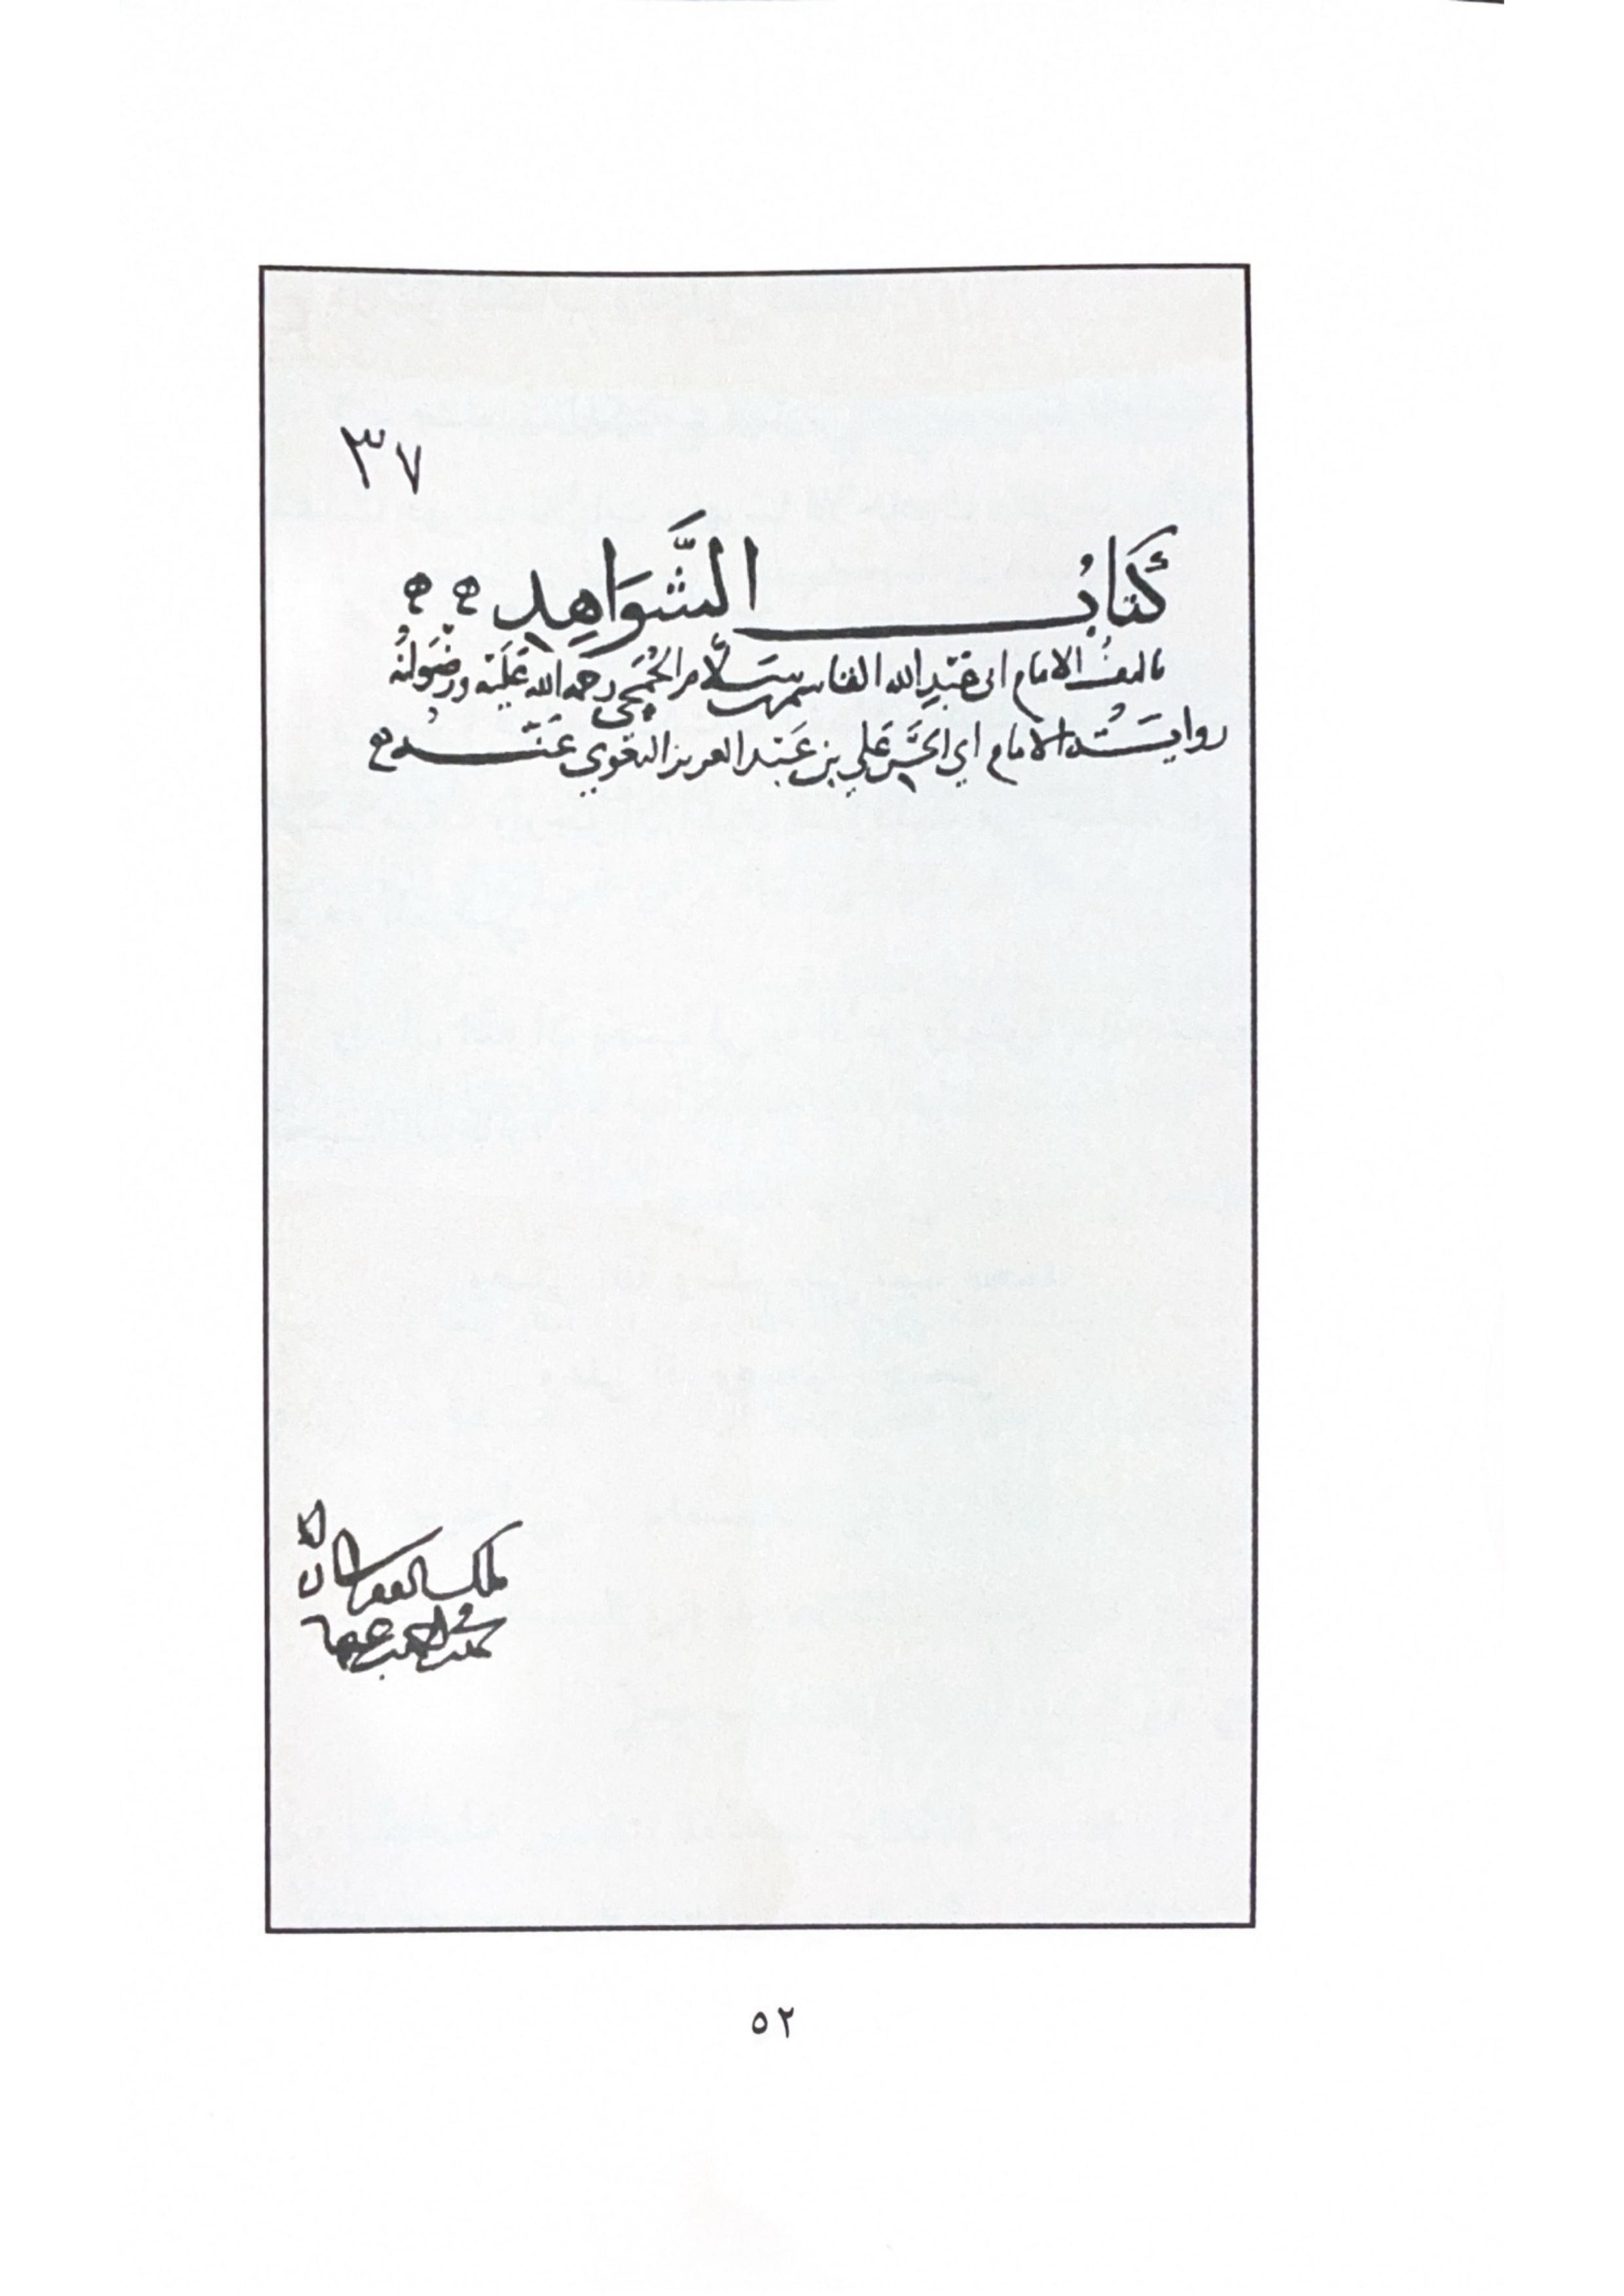 ٣٧
كتاب الشَّوَاهِدِ
تاليف الامام ابى عَبْدِ الله القاسم بن سَلَّام الجُمَحِي رحمه الله عَلَيْه ورضْوَانُه
روايَة الامام أبي الحَسَن عَلي بن عَبْد العزيز البَغَوي عَنْهُ
٥٢